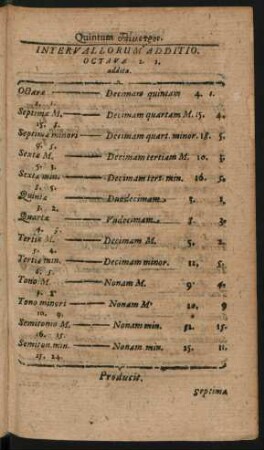 Quintum
INTERVALLORUM ADDITIO.
OCTAVA 2. 1.
addita
Octava Decimam quintam 4. 1.
2. 1.
Septima M. Decimam quartam M. 15. 4.
15. 8.
Septima minori Decimam quart. minor. 18. 5.
9. 5.
Sexta M. Decimam tertiam M. 10. 3.
5. 3.
Sexta min. Decimam tert. min. 16. 5.
8. 5.
Quinta Duodecimam 3. 1.
3. 2.
Quarta Undecimam 8. 3.
4. 3.
Tertia M. Decimam M. 5. 2.
5. 4.
Tertia min. Decimam minor. 12. 5.
6. 5.
Tono M. Nonam M. 9. 4.
9. 8.
Tono minori Nonam M. 20. 9
10. 9.
Semitonio M. Nonam min. 32. 15.
16. 15.
Semiton. min. Nonam min. 25. 12.
25. 24.
Producit.
Septima